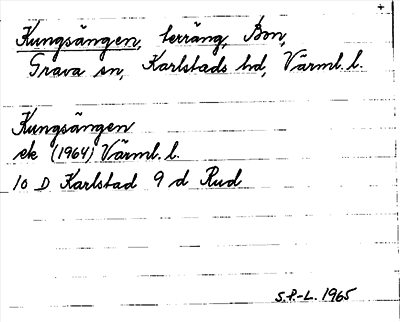 +
Kungsängen, terräng, Bm,
Grava sn, Karlstads hd, Värml. l.
Kungsängen
ek (1964) Värml. l.
10 D Karlstad 9 d Rud
S.P.-L. 1965